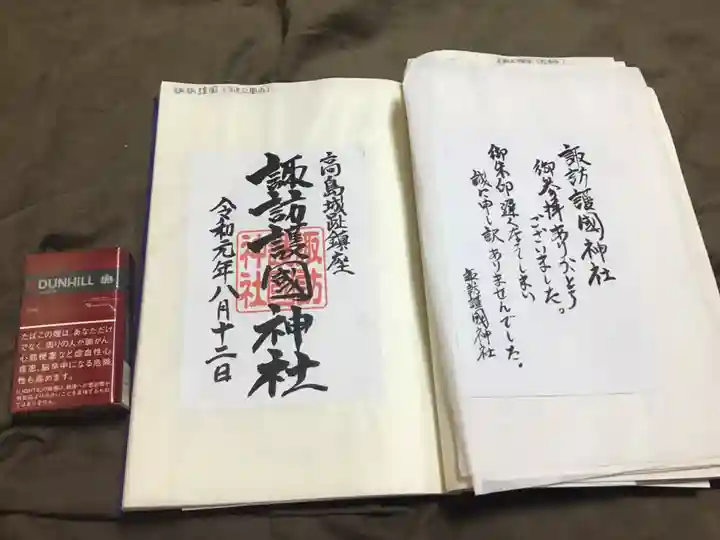 高島城趾鎮座
諏訪護國神社
令和元年八月十二日
諏訪
神社
諏訪護國神社
御参拝ありがとう
ございました。
御朱印遅くなってしまい
誠に申し訳ありませんでした。
諏訪護國神社
DUNHILL
たばこの煙は、あなただけ
でなく、周りの人が肺がん、
心筋梗塞など虚血性心
疾患、脳卒中になる危険
性も高めます。